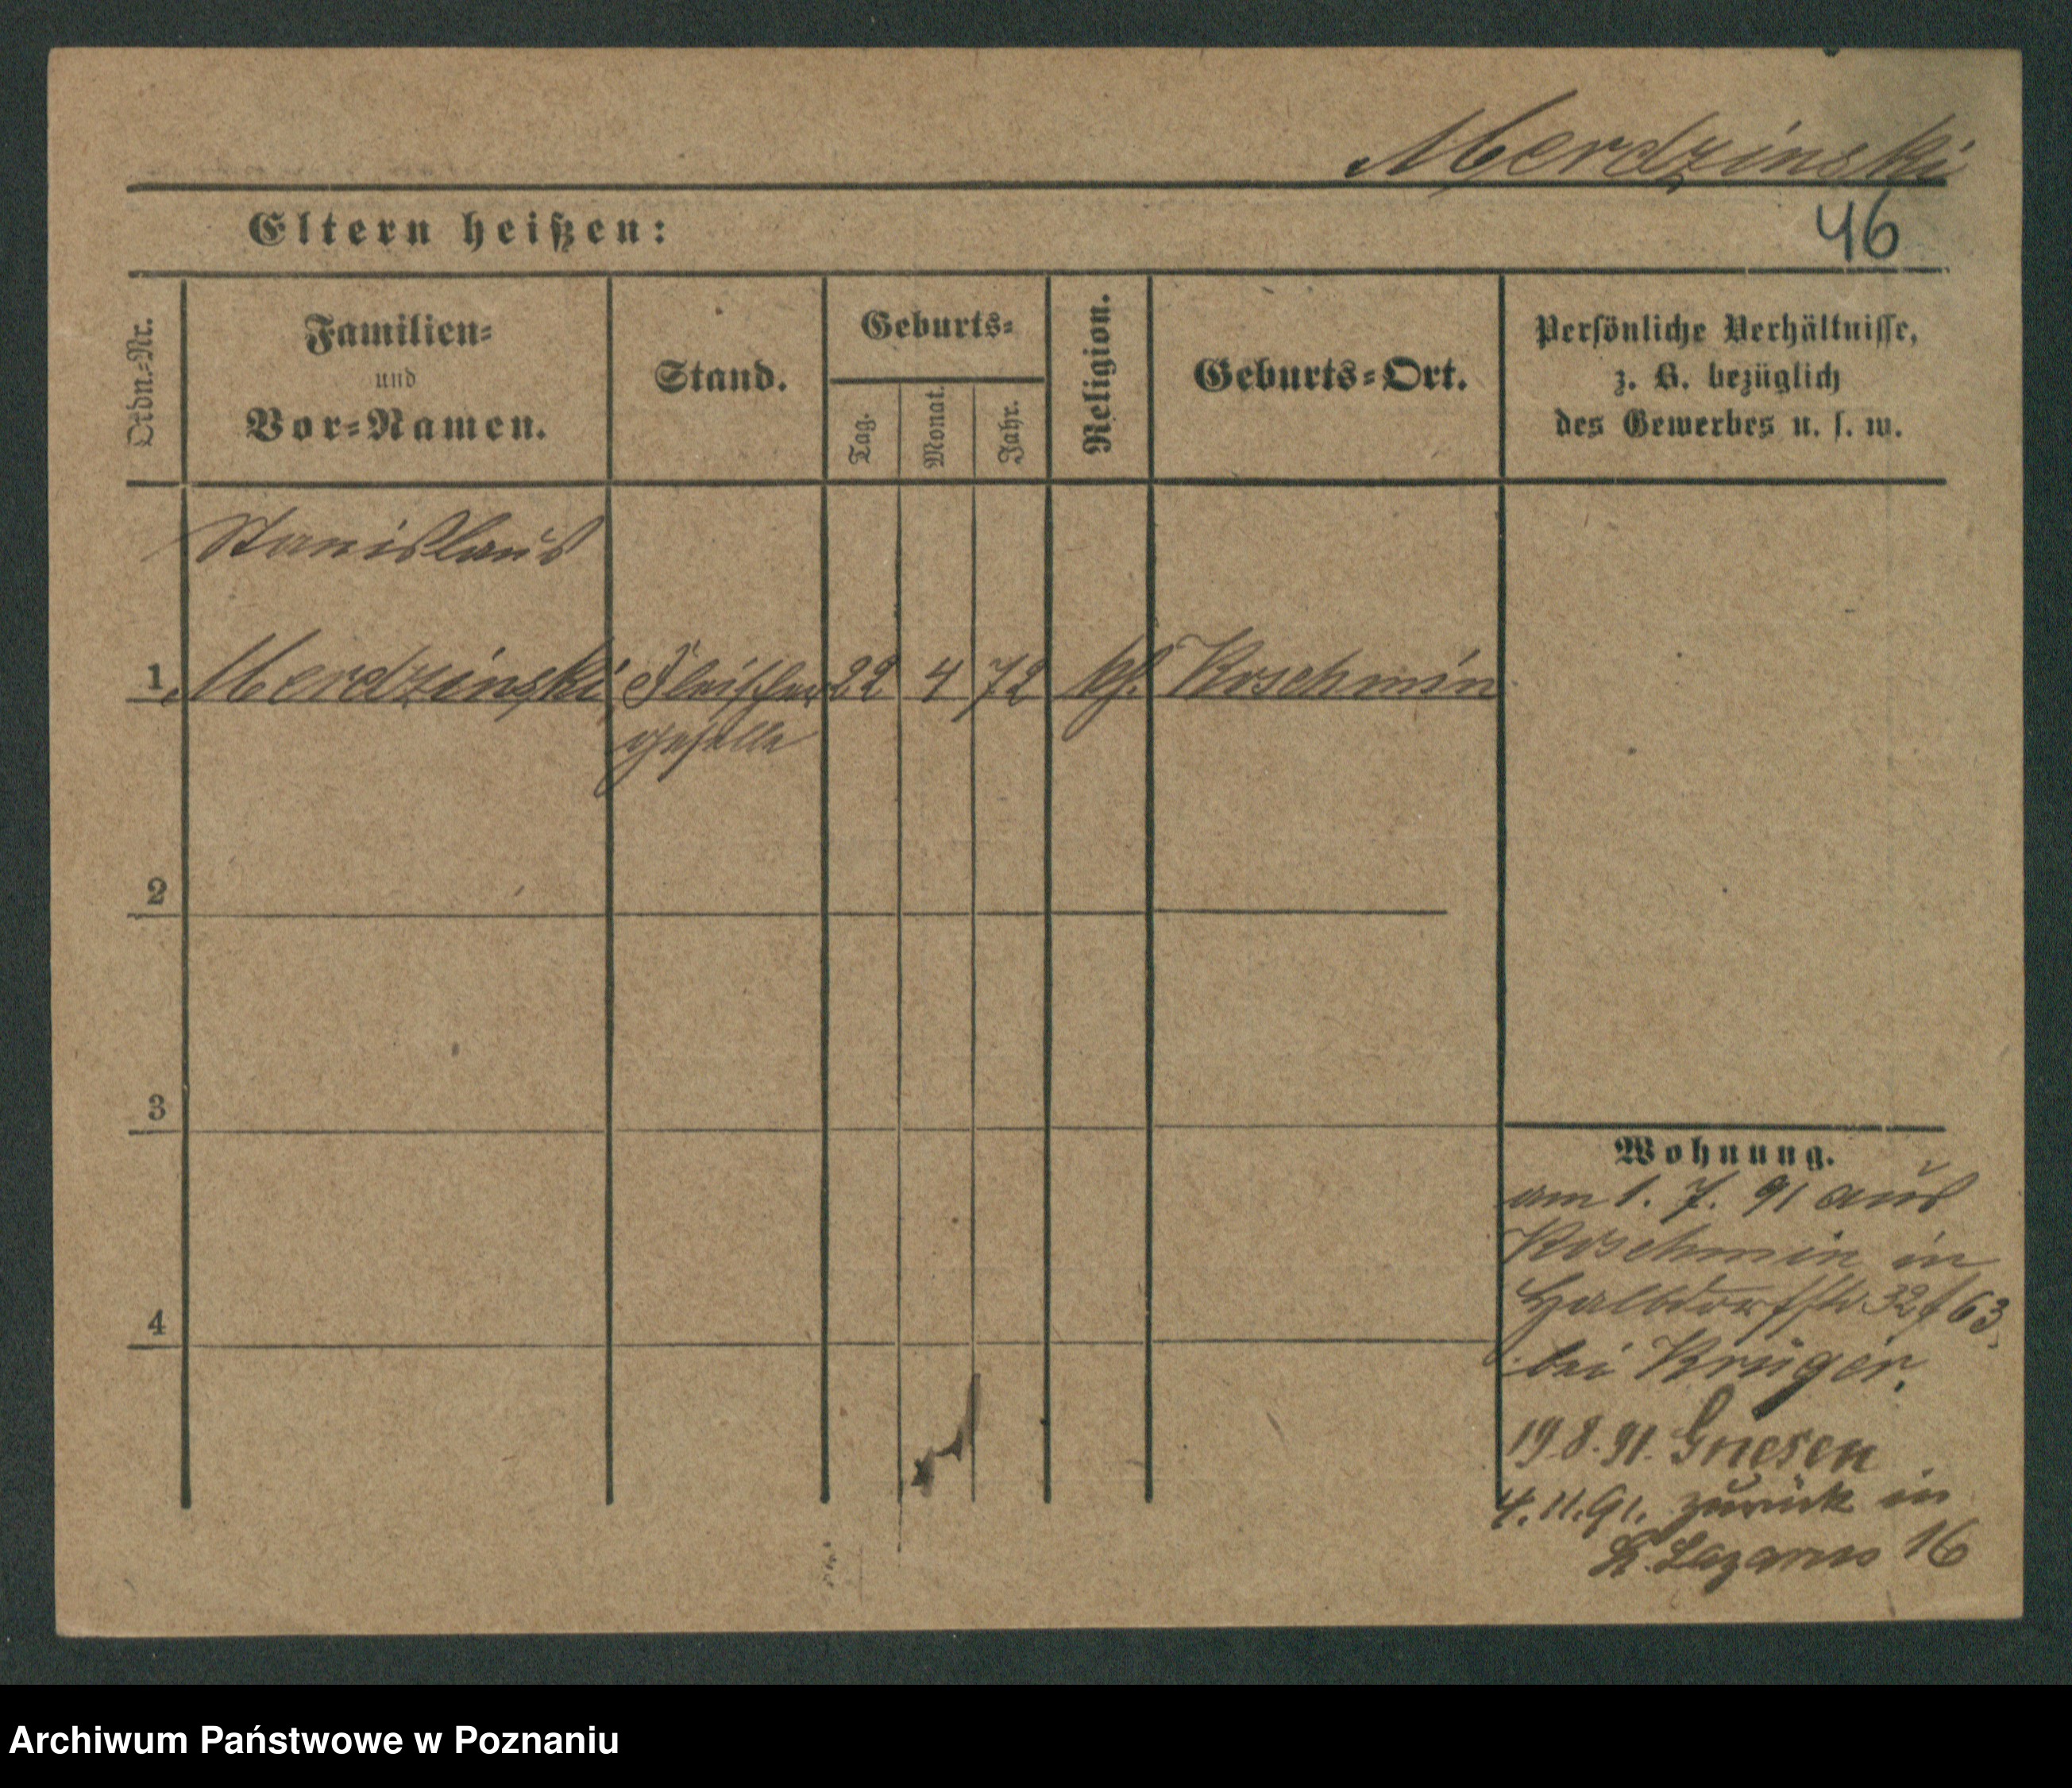 Merdzinski
46
Eltern heißen:
Ordn.-Nr.
Familien-
und
Vor-Namen.
Stand.
Geburts-
Tag.
Monat.
Jahr.
Religion.
Geburts-Ort.
Persönliche Verhältnisse,
z. B. bezüglich
des Gewerbes u. s. w.
Stanislaus
1 Merdzinski Fleischer 22 4 72 kh. Koschmin
geselle
2
3
4
Wohnung.
am 1. 7. 91 aus
Koschmin in
Halbdorfstr 32 f 63
bei Krüger.
19.8.91. Gnesen
4.11.91. zurück in
St. Lazarus 16
Archiwum Państwowe w Poznaniu